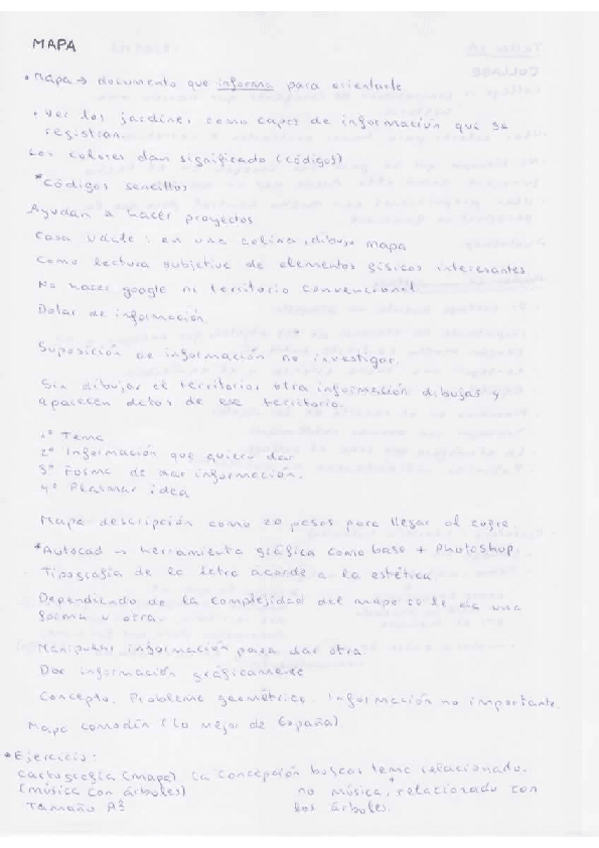 MAPA
• Mapa → documento que informa para orientarte
• Ver los jardines como capas de información que se
registran.
Los colores dan significado (códigos)
*Códigos sencillos
Ayudan a hacer proyectos
Casa Udalle: en una colina, dibujo mapa
Como lectura subjetiva de elementos físicos interesantes
No hacer google ni territorio convencional
Dotar de información
Suposición de información no investigar.
Sin dibujar el territorio otra información dibujas y
aparecen datos de ese territorio.
1º Tema
2º Información que quiero dar
3º Forma de dar información.
4º Plasmar idea
Mapa descripción como 20 pasos para llegar al cofre.
*Autocad → herramienta gráfica como base + Photoshop.
Tipografía de la letra acorde a la estética
Dependiendo de la complejidad del mapa se le da una
forma u otra.
Manipular información para dar otra.
Dar información gráficamente
Concepto. Problema geométrico. Información no importante.
Mapa comodín (Lo mejor de España)
*Ejercicio:
Cartografía (mapa) La Concepción buscas tema relacionado.
(música con árboles) no música, relacionado con
Tamaño A3 los árboles.